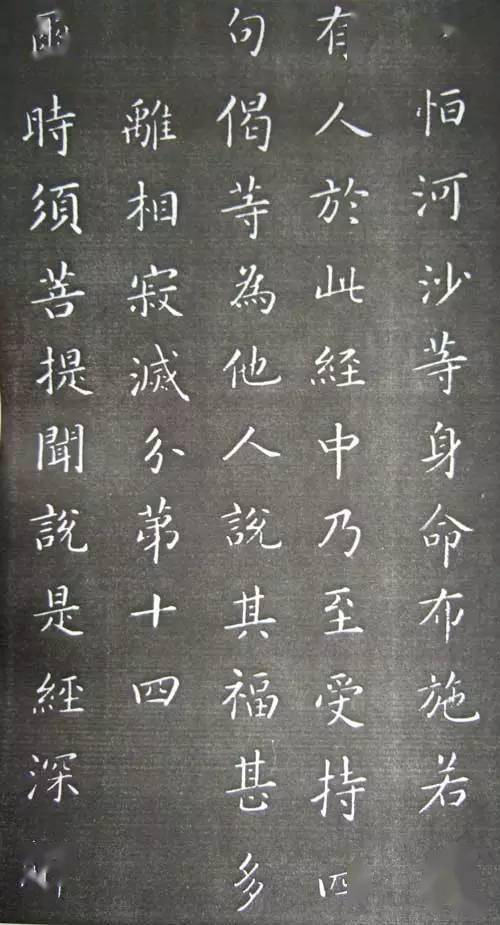 恒河沙等身命布施若
有人於此經中乃至受持四
句偈等為他人說其福甚多
離相寂滅分第十四
時須菩提聞說是經深